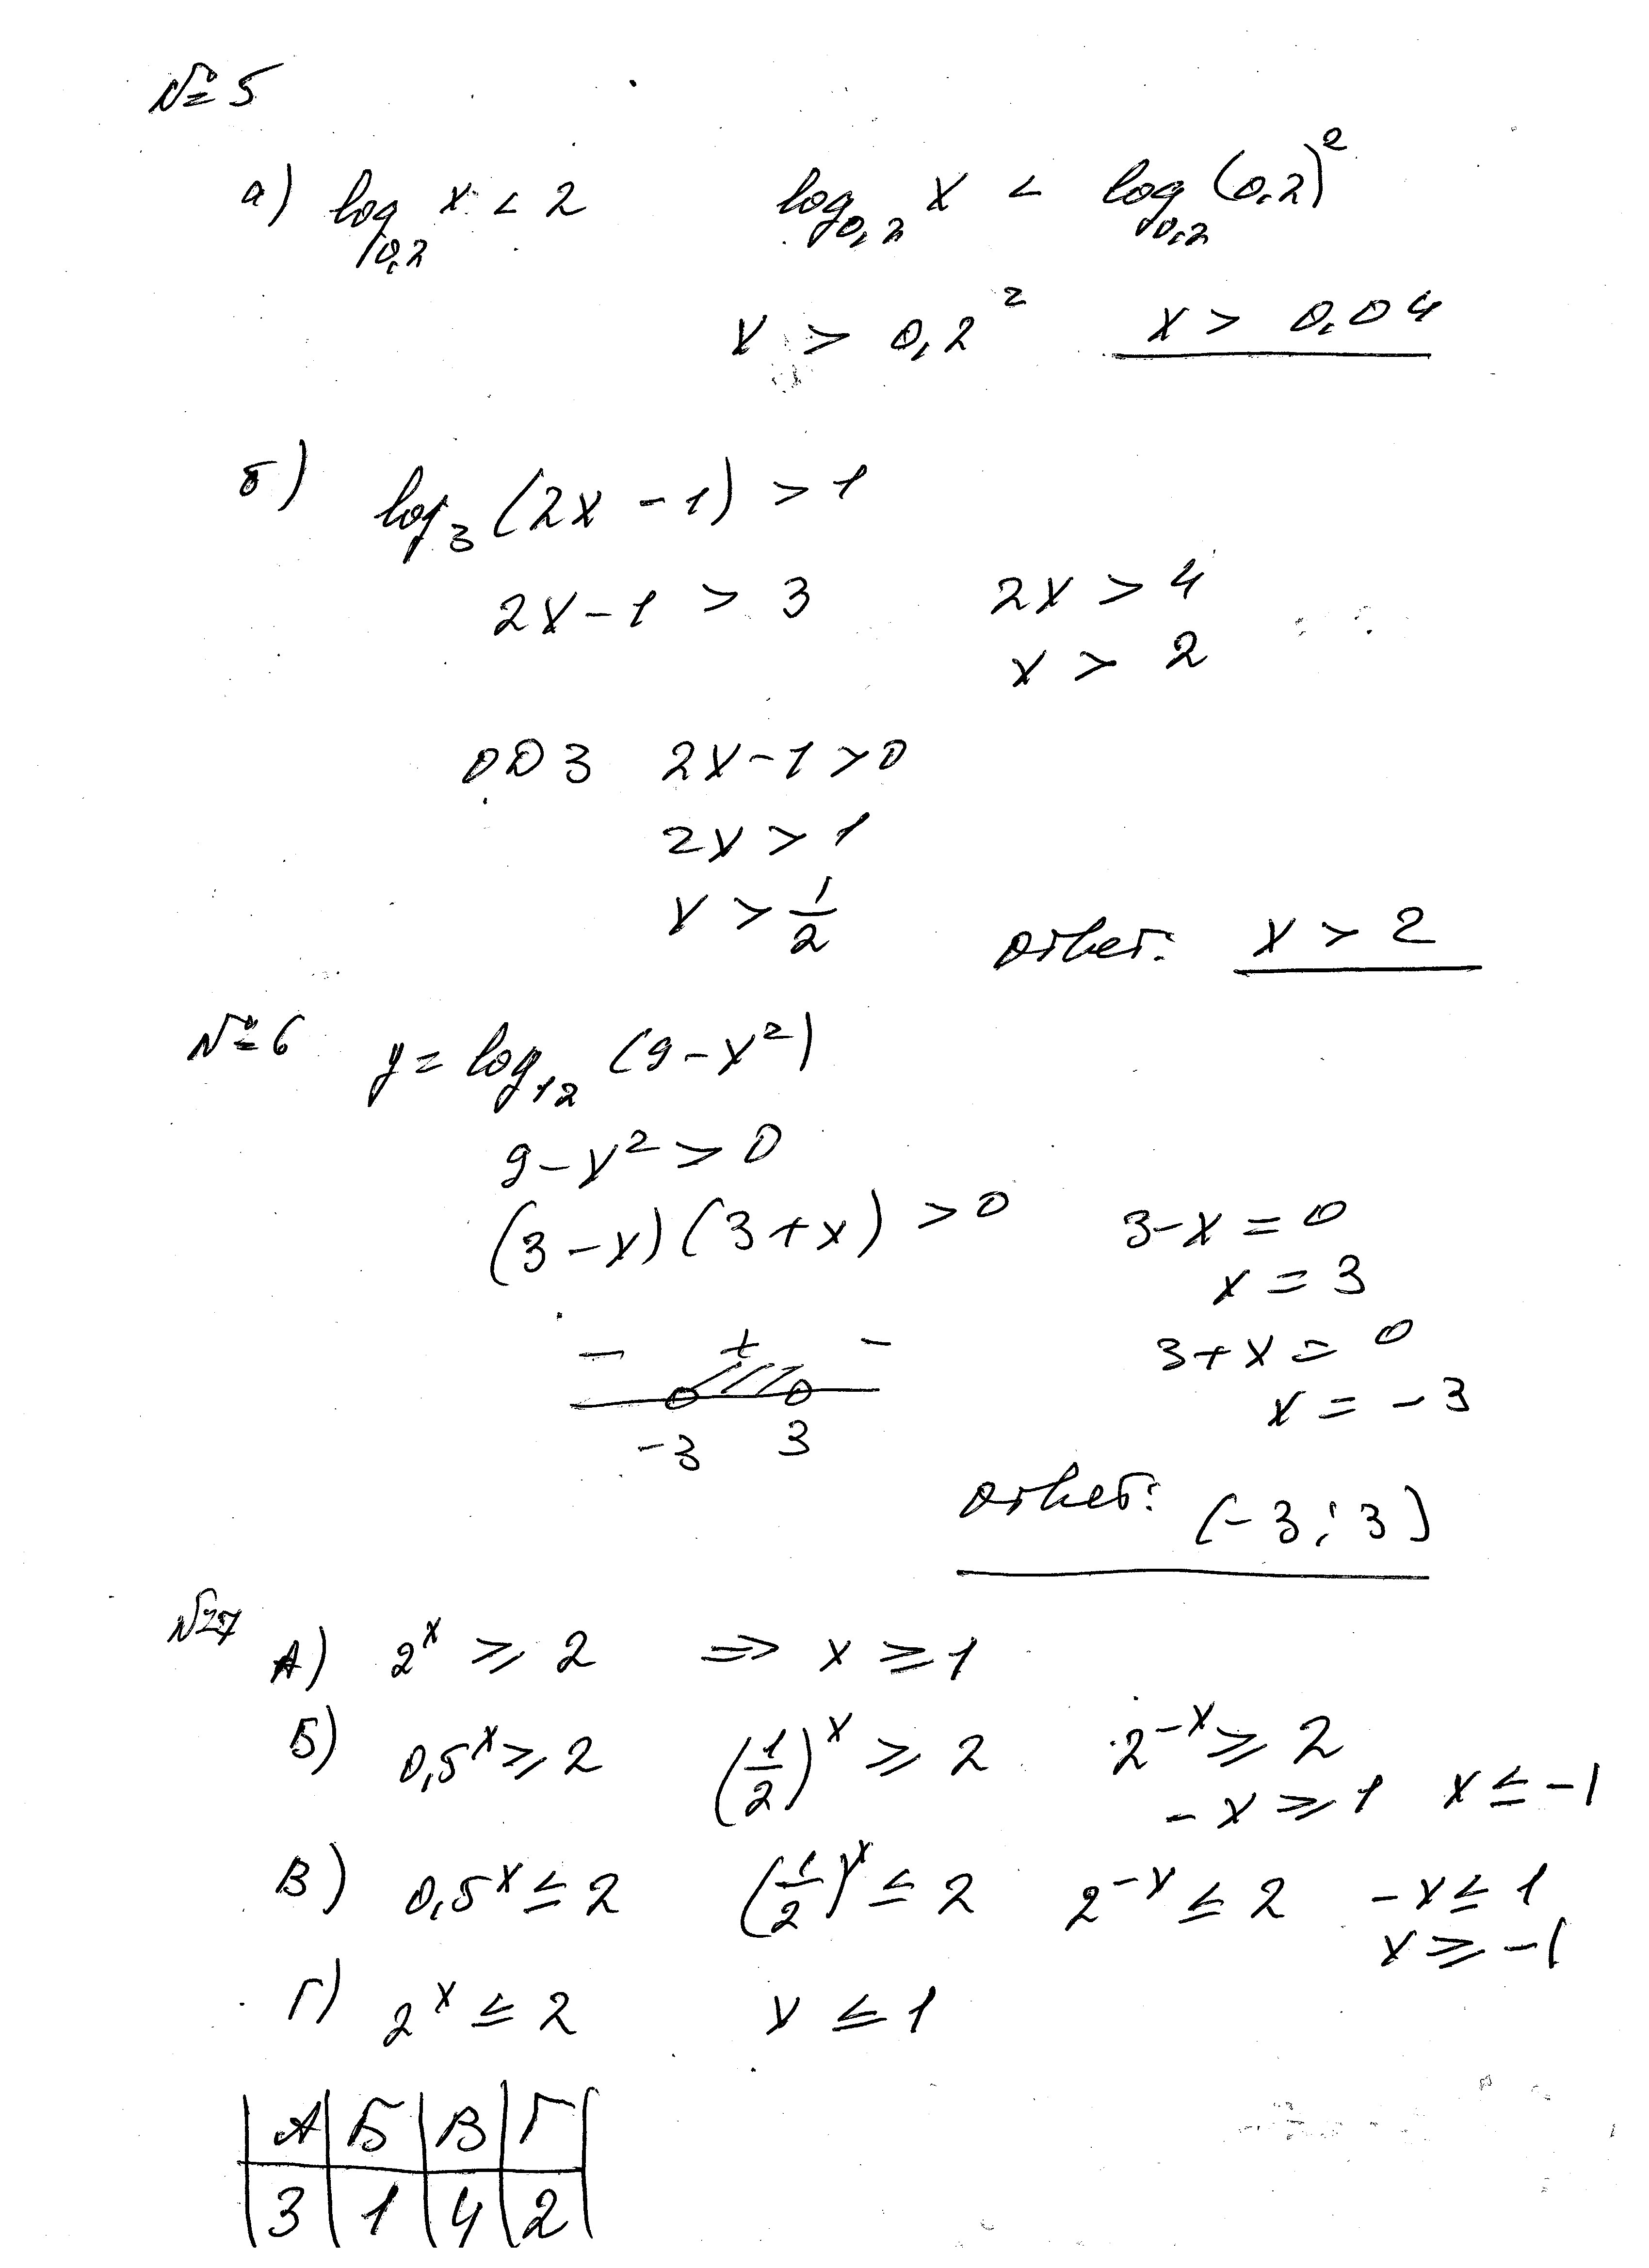 №5
а) log₀,₂ x < 2    log₀,₂ x < log₀,₂ (0,2)²
x > 0,2²    x > 0,04
б) log₃ (2x - 1) > 1
2x - 1 > 3    2x > 4
x > 2
ОДЗ 2x - 1 > 0
2x > 1
x > 1/2    Ответ: x > 2
№6 y = log₁₂ (9 - x²)
9 - x² > 0
(3 - x)(3 + x) > 0    3 - x = 0
x = 3
- + -    3 + x = 0
-3 3    x = -3
Ответ: (-3; 3)
№7 А) 2ˣ ⩾ 2 ⇒ x ⩾ 1
Б) 0,5ˣ ⩾ 2    (1/2)ˣ ⩾ 2    2⁻ˣ ⩾ 2
-x ⩾ 1    x ≤ -1
В) 0,5ˣ ≤ 2    (1/2)ˣ ≤ 2    2⁻ˣ ≤ 2    -x ≤ 1
x ⩾ -1
Г) 2ˣ ≤ 2    x ≤ 1
А Б В Г
3 1 4 2